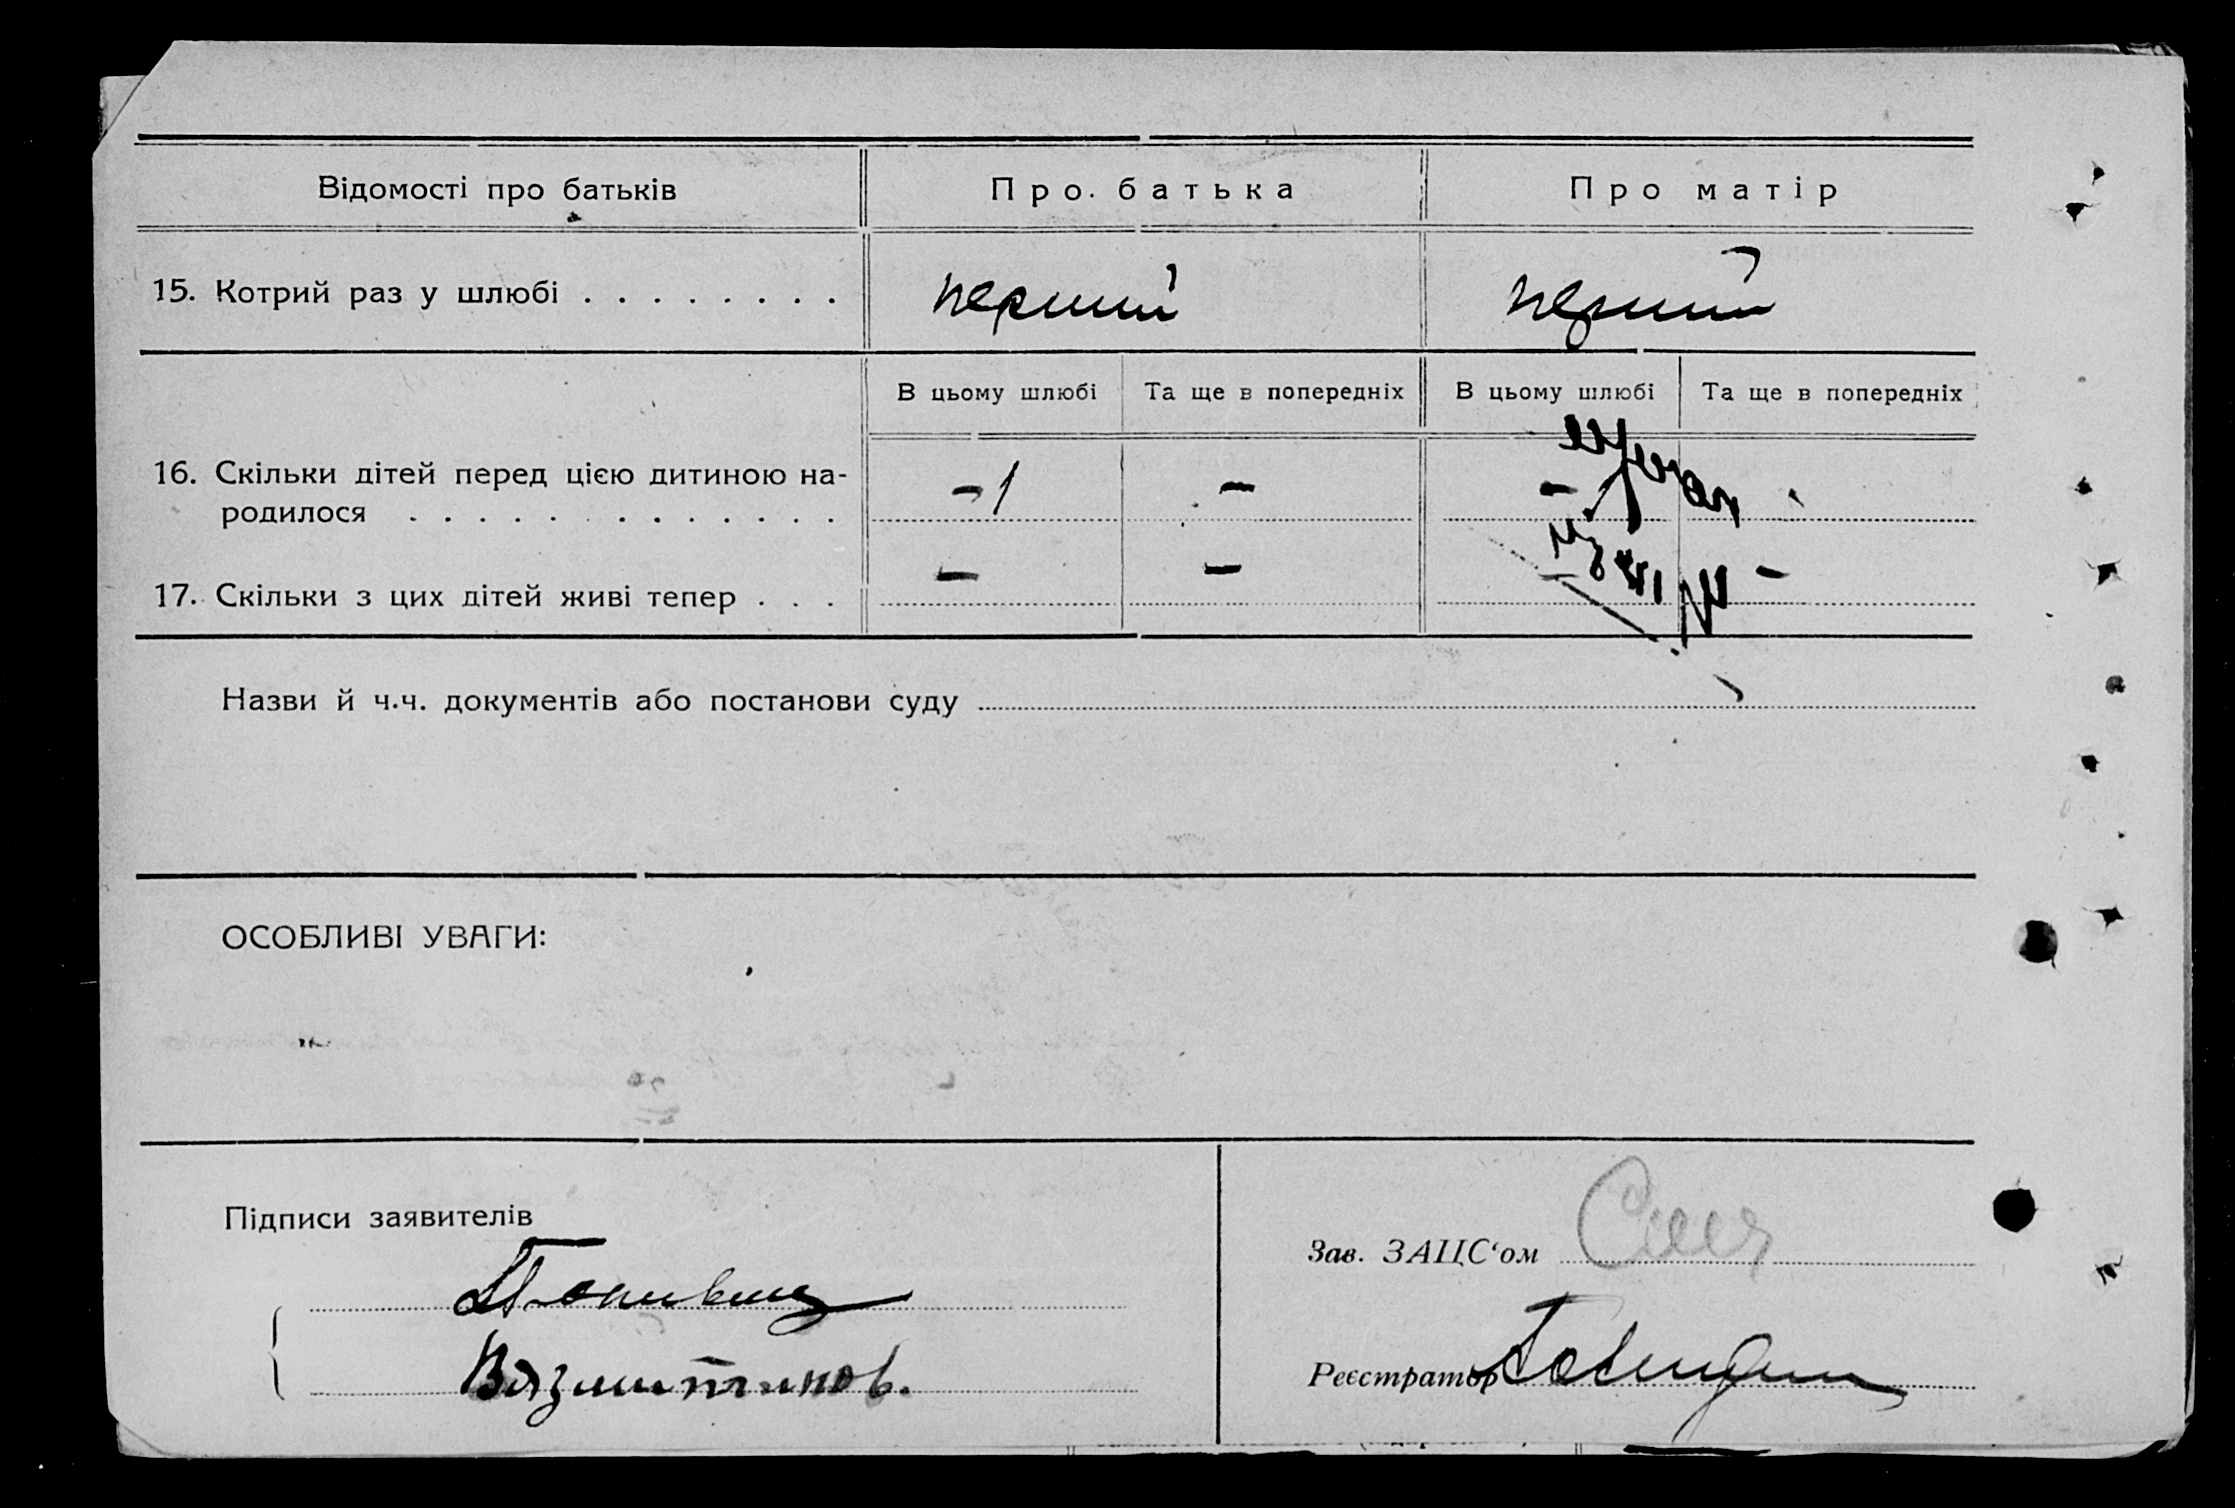 Відомості про батьків Про батька Про матір
15. Котрий раз у шлюбі . . . . . . . . перший перший
В цьому шлюбі Та ще в попередніх В цьому шлюбі Та ще в попередніх
16. Скільки дітей перед цією дитиною на-
родилося . . . . . . . . . . . . . - 1 - -
17. Скільки з цих дітей живі тепер . . . - - - -
Назви й ч.ч. документів або постанови суду
ОСОБЛИВІ УВАГИ:
Підписи заявителів
Зав. ЗАЦС‘ом
Вязмитинов.
Реєстратор